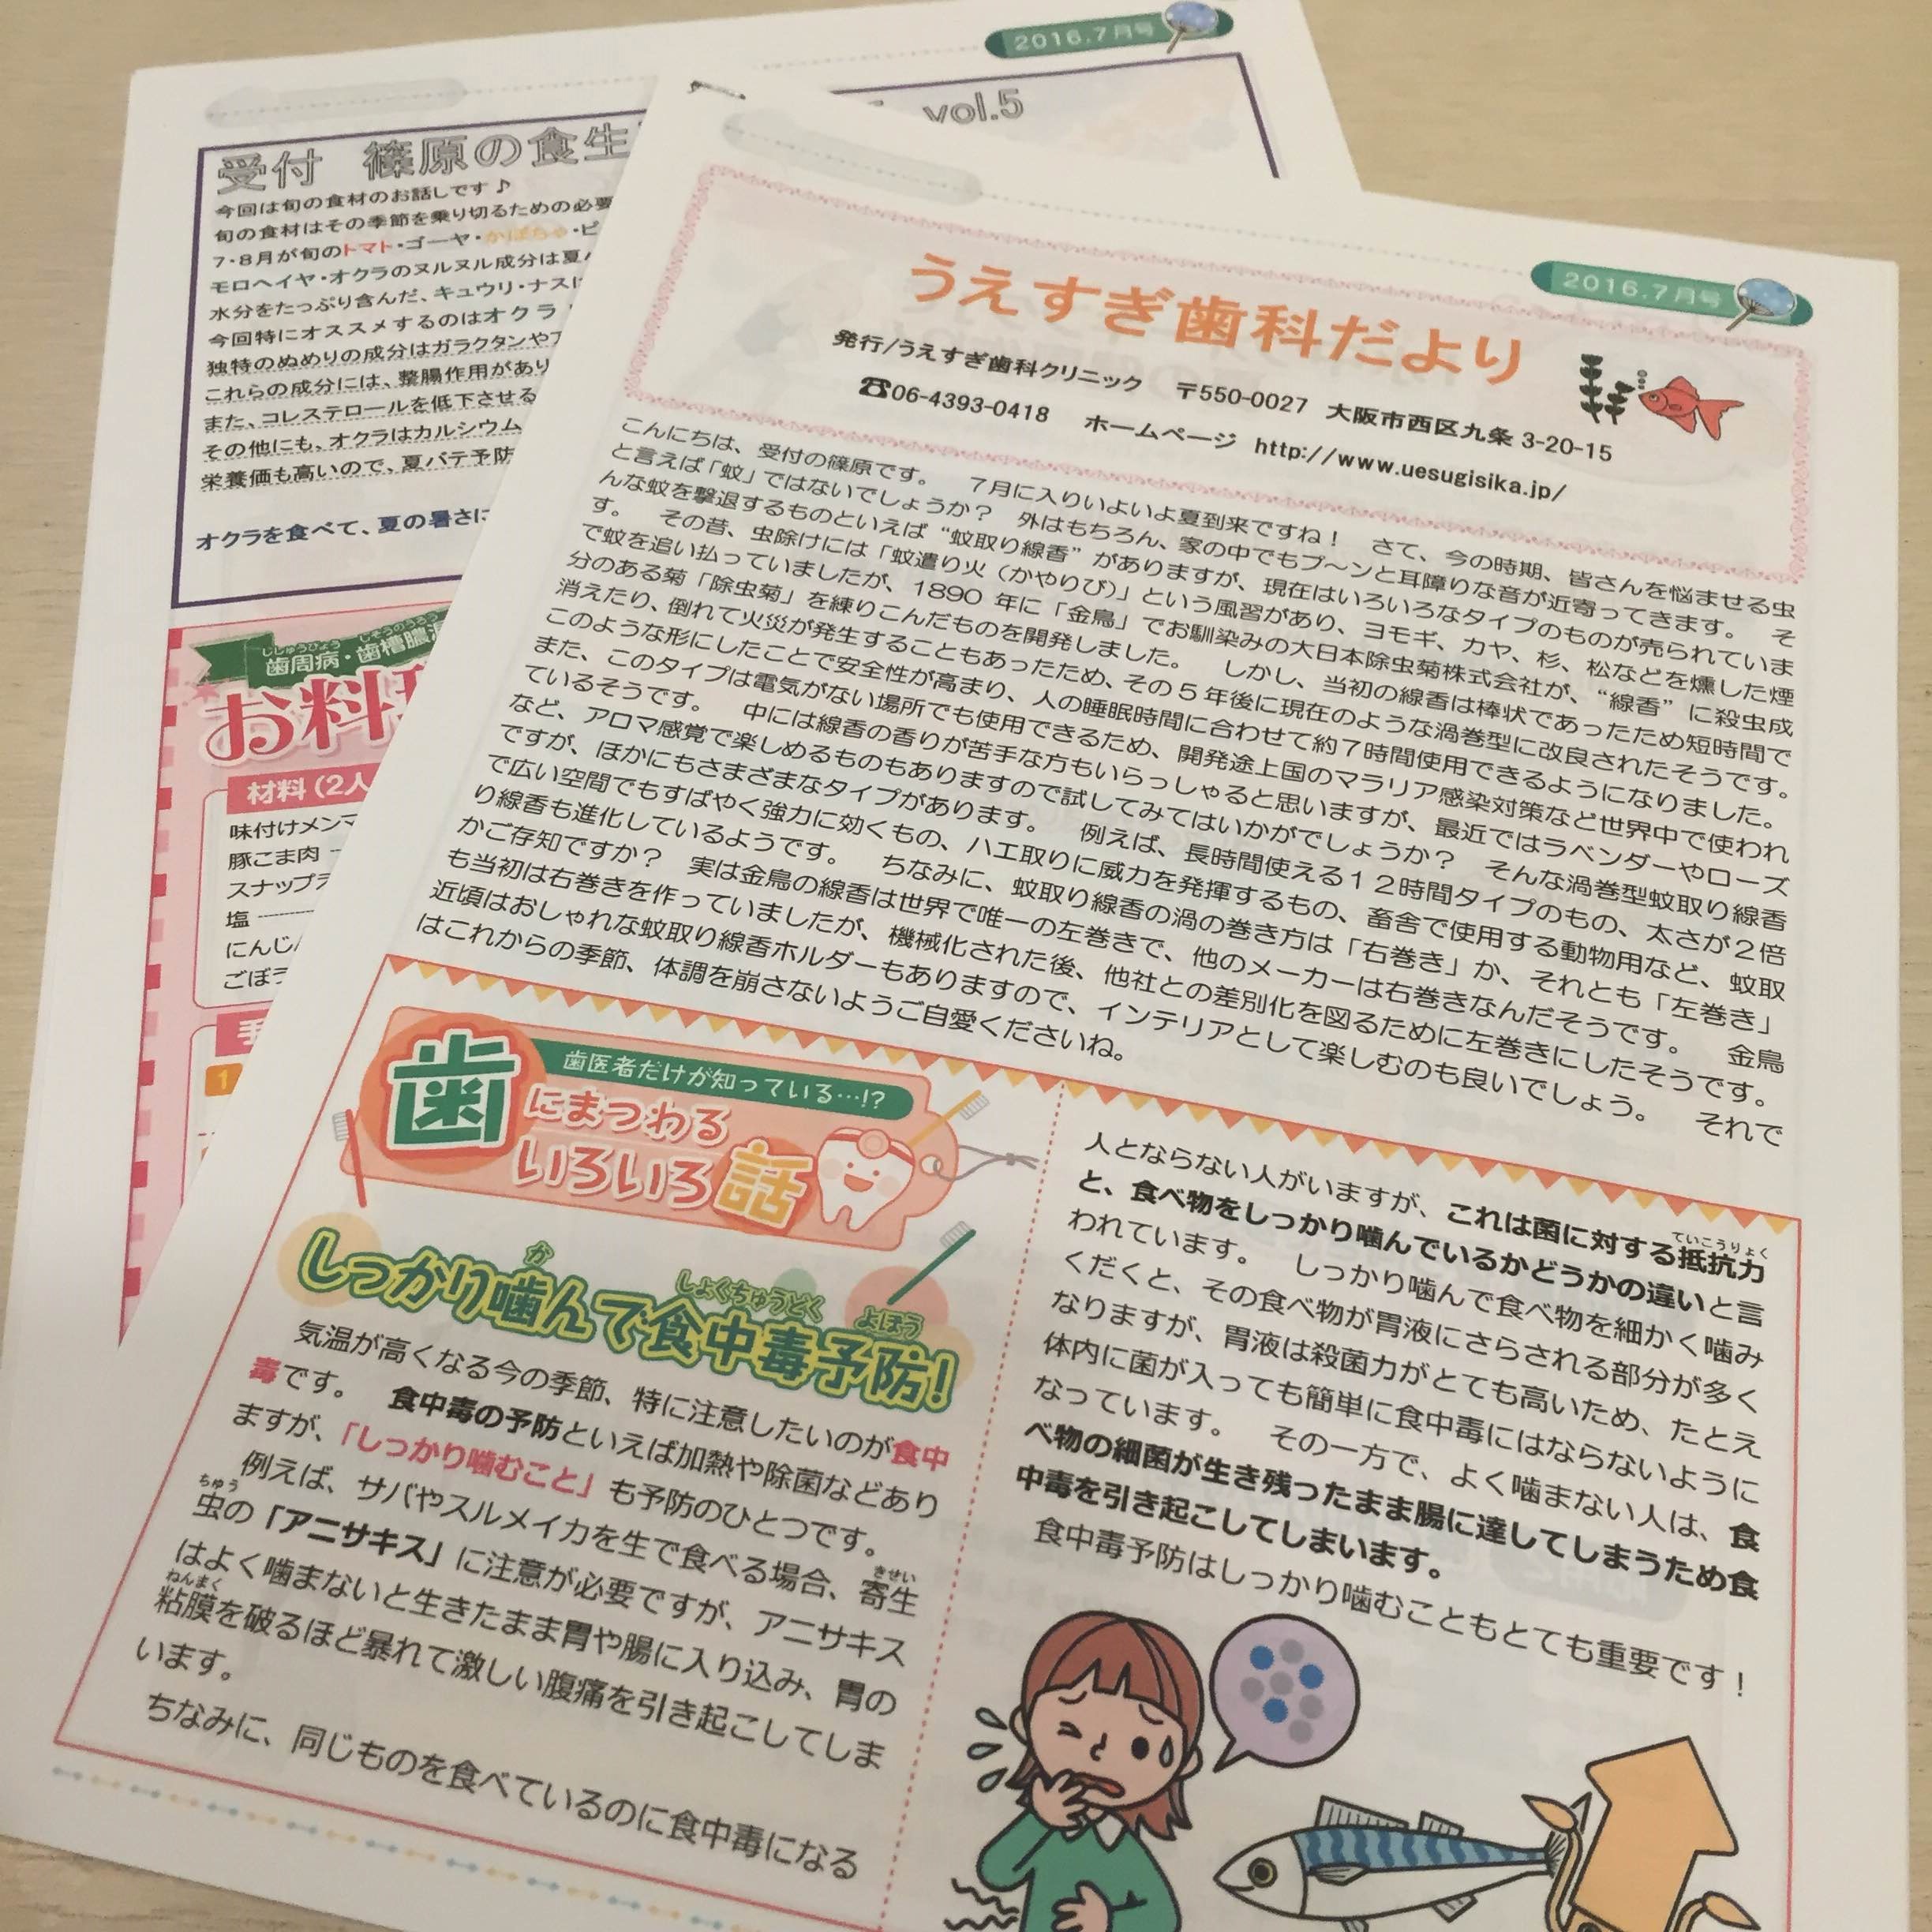 2016.7月号
vol.5
受付 篠原の食生
今回は旬の食材のお話しです♪
旬の食材はその季節を乗り切るための必要
7・8月が旬のトマト・ゴーヤ・かぼちゃ・ピ
モロヘイヤ・オクラのヌルヌル成分は夏バ
水分をたっぷり含んだ、キュウリ・ナスに
今回特にオススメするのはオクラ
独特のぬめりの成分はガラクタンやア
これらの成分には、整腸作用があり
また、コレステロールを低下させる
その他にも、オクラはカルシウム
栄養価も高いので、夏バテ予防
オクラを食べて、夏の暑さに
ししゅうびょう しそうのうろう
歯周病・歯槽膿
お料
材料(2人
味付けメンマ
豚こま肉
スナップ
塩
にんじ
ごぼう
1
2016.7月号
うえすぎ歯科だより
発行/うえすぎ歯科クリニック 〒550-0027 大阪市西区九条 3-20-15
☎06-4393-0418 ホームページ http://www.uesugisika.jp/
こんにちは、受付の篠原です。 7月に入りいよいよ夏到来ですね! さて、今の時期、皆さんを悩ませる虫
と言えば「蚊」ではないでしょうか? 外はもちろん、家の中でもプ〜ンと耳障りな音が近寄ってきます。 そ
んな蚊を撃退するものといえば“蚊取り線香”がありますが、現在はいろいろなタイプのものが売られていま
す。 その昔、虫除けには「蚊遣り火(かやりび)」という風習があり、ヨモギ、カヤ、杉、松などを燻した煙
で蚊を追い払っていましたが、1890年に「金鳥」でお馴染みの大日本除虫菊株式会社が、“線香”に殺虫成
分のある菊「除虫菊」を練りこんだものを開発しました。 しかし、当初の線香は棒状であったため短時間で
消えたり、倒れて火災が発生することもあったため、その5年後に現在のような渦巻型に改良されたそうです。
このような形にしたことで安全性が高まり、人の睡眠時間に合わせて約7時間使用できるようになりました。
また、このタイプは電気がない場所でも使用できるため、開発途上国のマラリア感染対策など世界中で使われ
ているそうです。 中には線香の香りが苦手な方もいらっしゃると思いますが、最近ではラベンダーやローズ
など、アロマ感覚で楽しめるものもありますので試してみてはいかがでしょうか? そんな渦巻型蚊取り線香
ですが、ほかにもさまざまなタイプがあります。 例えば、長時間使える12時間タイプのもの、太さが2倍
で広い空間でもすばやく強力に効くもの、ハエ取りに威力を発揮するもの、畜舎で使用する動物用など、蚊取
り線香も進化しているようです。 ちなみに、蚊取り線香の渦の巻き方は「右巻き」か、それとも「左巻き」
かご存知ですか? 実は金鳥の線香は世界で唯一の左巻きで、他のメーカーは右巻きなんだそうです。 金鳥
も当初は右巻きを作っていましたが、機械化された後、他社との差別化を図るために左巻きにしたそうです。
近頃はおしゃれな蚊取り線香ホルダーもありますので、インテリアとして楽しむのも良いでしょう。 それで
はこれからの季節、体調を崩さないようご自愛くださいね。
歯医者だけが知っている…!?
歯にまつわる
いろいろ話
か しょくちゅうどく よぼう
しっかり噛んで食中毒予防!
気温が高くなる今の季節、特に注意したいのが食中
毒です。 食中毒の予防といえば加熱や除菌などあり
ますが、「しっかり噛むこと」も予防のひとつです。
例えば、サバやスルメイカを生で食べる場合、寄生
きせい
ちゅう
虫の「アニサキス」に注意が必要ですが、アニサキス
はよく噛まないと生きたまま胃や腸に入り込み、胃の
ねんまく
粘膜を破るほど暴れて激しい腹痛を引き起こしてしま
います。
ちなみに、同じものを食べているのに食中毒になる
人とならない人がいますが、これは菌に対する抵抗力
ていこうりょく
と、食べ物をしっかり噛んでいるかどうかの違いと言
われています。 しっかり噛んで食べ物を細かく噛み
くだくと、その食べ物が胃液にさらされる部分が多く
なりますが、胃液は殺菌力がとても高いため、たとえ
体内に菌が入っても簡単に食中毒にはならないように
なっています。 その一方で、よく噛まない人は、食
べ物の細菌が生き残ったまま腸に達してしまうため食
中毒を引き起こしてしまいます。
食中毒予防はしっかり噛むこともとても重要です!